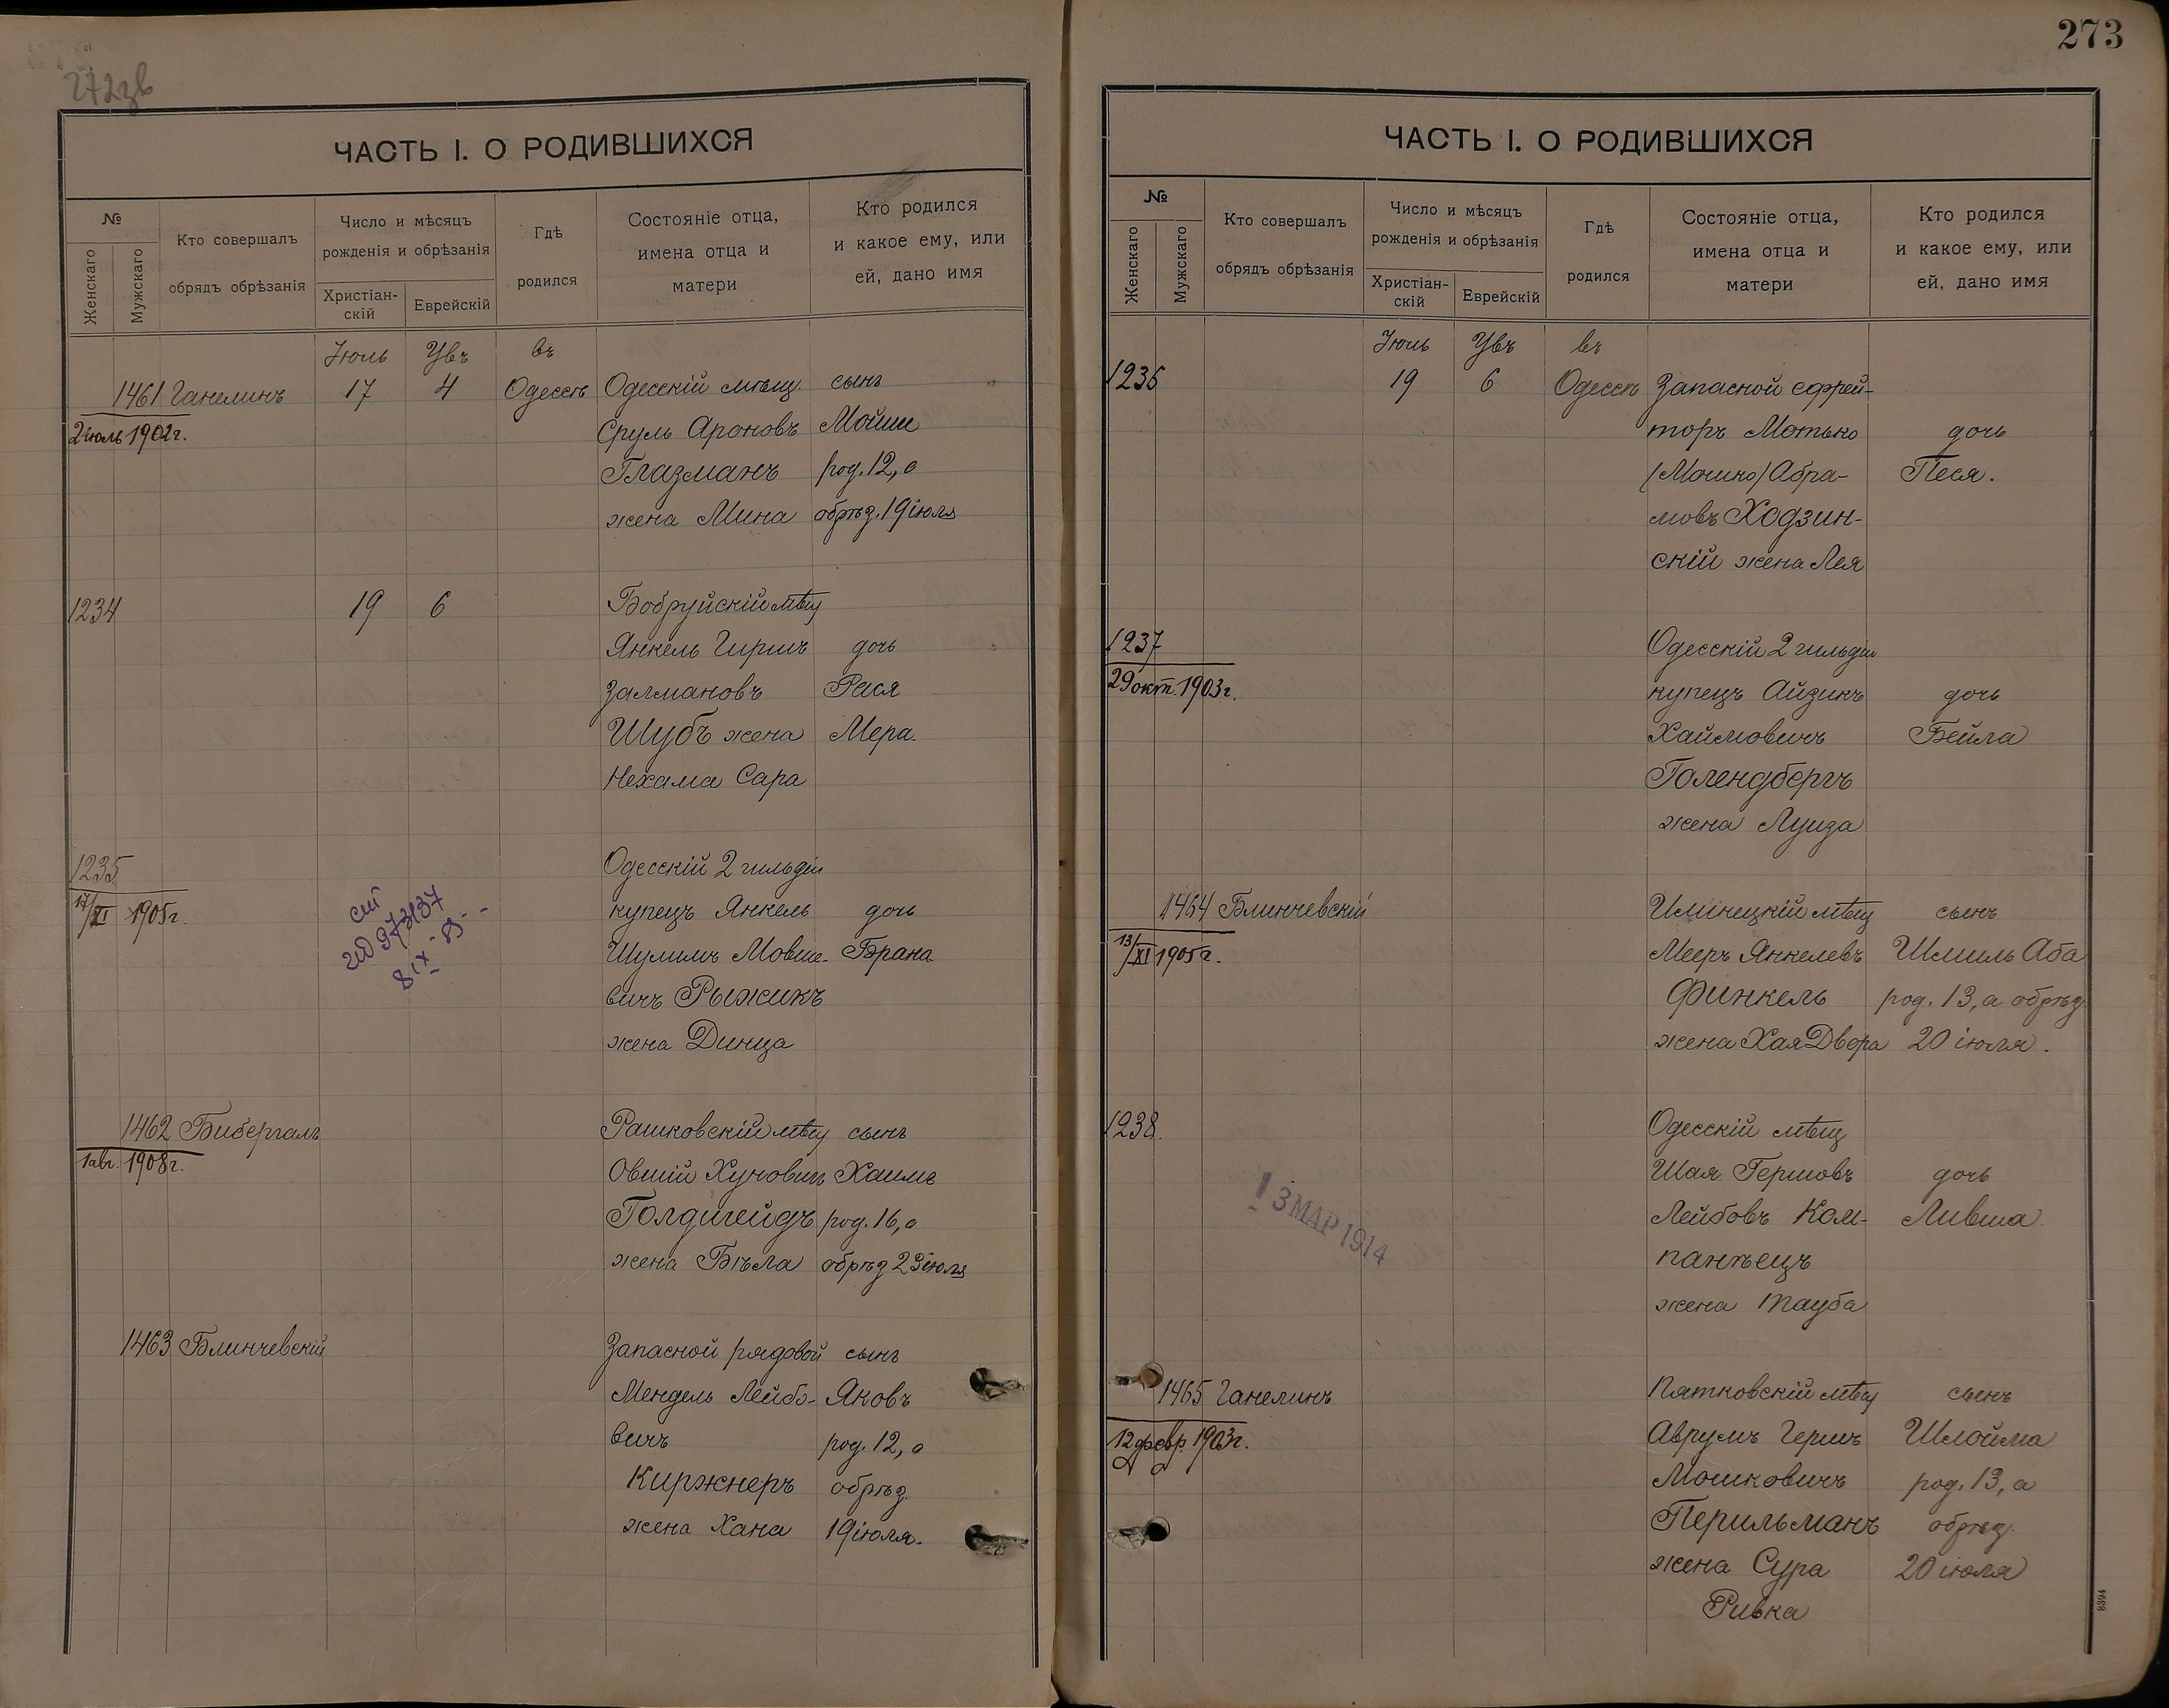 272зв
ЧАСТЬ I. О РОДИВШИХСЯ
№
Женскаго
Мужскаго
Кто совершалъ
обрядъ обрѣзанія
Число и мѣсяцъ
рожденія и обрѣзанія
Христіан-
скій
Еврейскій
Гдѣ
родился
Состояніе отца,
имена отца и
матери
Кто родился
и какое ему, или
ей, дано имя
Іюль Увъ въ
1461 Ганелинъ 17 4 Одессѣ Одесскій мѣщ. сынъ
2 іюль 1902 г. Сруль Ароновъ Мойше
Глазманъ род. 12, а
жена Мина обрѣз. 19 іюля
1234 19 6 Бобруйскій мѣщ
Янкель Гиршъ дочь
Залмановъ Рася
Шубъ жена Мера.
Нехама Сара
1235 Одесскій 2 гильдіи
17/XI 1905 г. купецъ Янкель дочь
Шулимъ Мовше- Брана
вичъ Рыжикъ
жена Динца
973137
8 IX
1462 Бибергалъ Рашковскій мѣщ сынъ
1 авг. 1908 г. Овшій Хуновичъ Хаимъ
Голдшейдъ род. 16, а
жена Бѣла обрѣз 23 іюля
1463 Блинчевскій Запасной рядовой сынъ
Мендель Лейбо- Яковъ
вичъ род. 12, а
Киржнеръ обрѣз
жена Хана 19 іюля.
273
ЧАСТЬ I. О РОДИВШИХСЯ
№
Женскаго
Мужскаго
Кто совершалъ
обрядъ обрѣзанія
Число и мѣсяцъ
рожденія и обрѣзанія
Христіан-
скій
Еврейскій
Гдѣ
родился
Состояніе отца,
имена отца и
матери
Кто родился
и какое ему, или
ей, дано имя
Іюль Увъ въ
1236 19 6 Одессѣ Запасной ефрей-
торъ Мотько дочь
(Мошко) Абра- Песя.
мовъ Ходзин-
скій жена Лея
1237 Одесскій 2 гильдіи
29 окт. 1903 г. купецъ Айзикъ дочь
Хаймовичъ Бейла
Голендбергъ
жена Луиза
1464 Блинчевскій Илинецкій мѣщ сынъ
13/XI 1905 г. Мееръ Янкелевъ Шмиль Аба
Финкель род. 13, а обрѣз
жена Хая Двора 20 іюля.
1238. Одесскій мѣщ
Шая Гершовъ дочь
Лейбовъ Ком- Лившa
панѣецъ
жена Тауба
13 МАР 1914
1465 Ганелинъ Пятковскій мѣщ сынъ
12 февр. 1903 г. Аврумъ Гершъ Шлойма
Мошковичъ род. 13, а
Перильманъ обрѣз.
жена Сура 20 іюля
Ривка